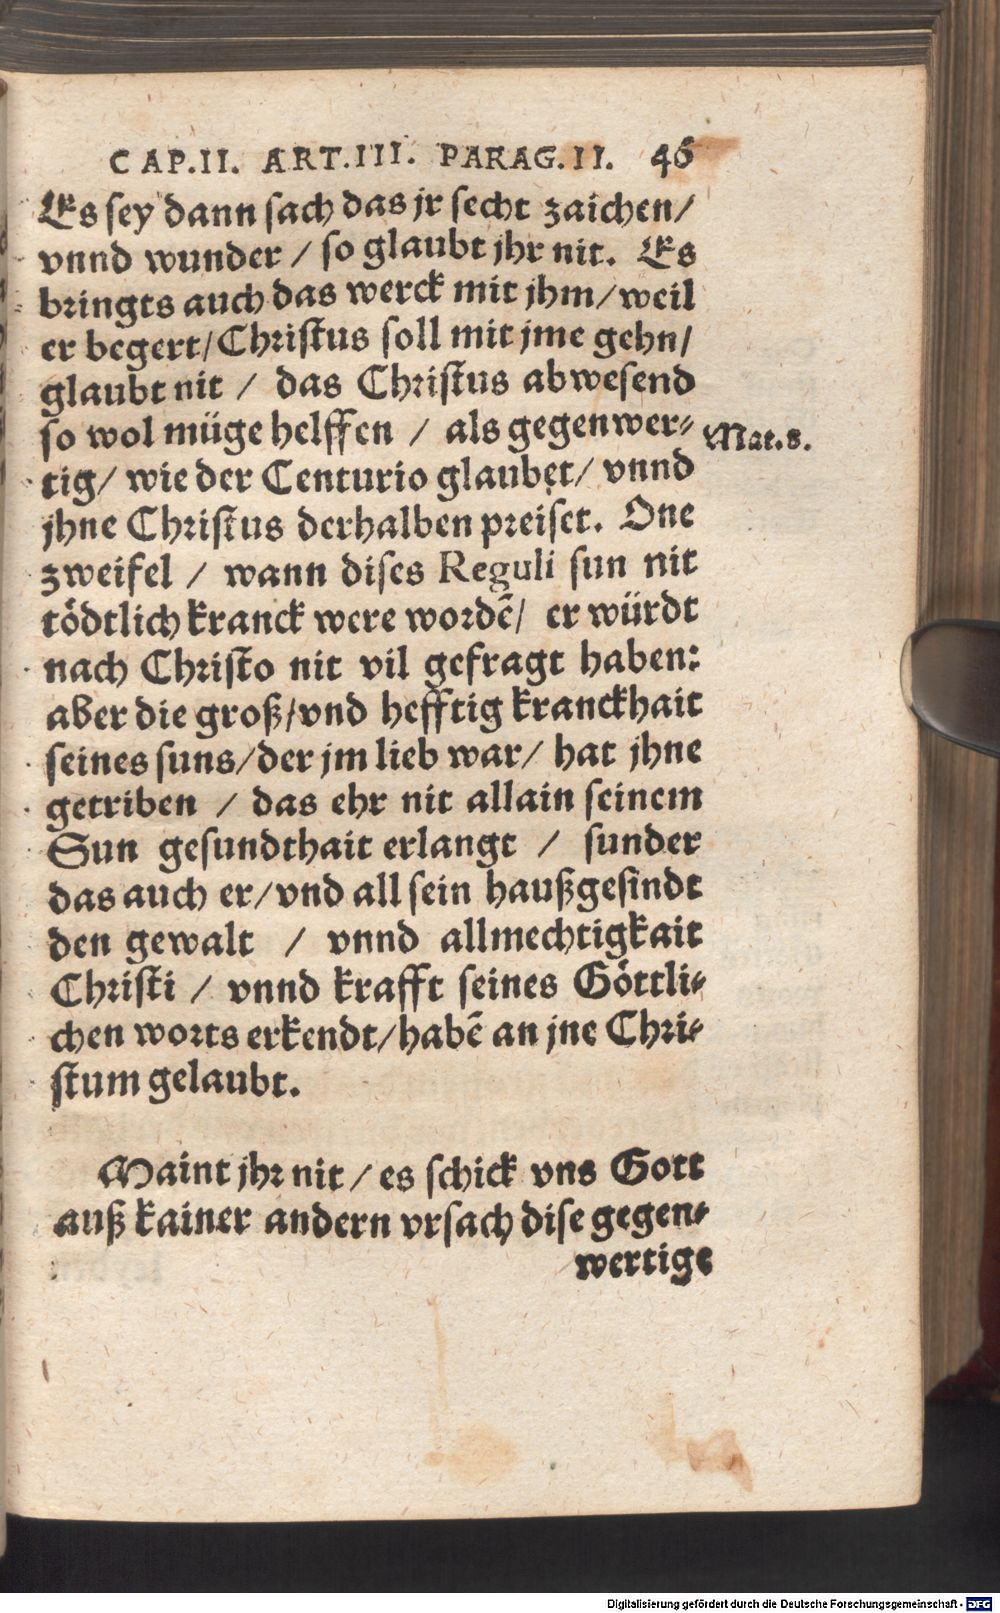 CAP.II. ART.III. PARAG.II. 46
Es sey dann sach das jr secht zaichen/
vnnd wunder / so glaubt jhr nit. Es
bringts auch das werck mit jhm/ weil
er begert/ Christus soll mit jme gehn/
glaubt nit / das Christus abwesend
so wol müge helffen / als gegenwer-
Mat.8.
tig/ wie der Centurio glaubet/ vnnd
jhne Christus derhalben preiset. One
zweifel / wann dises Reguli sun nit
tödtlich kranck were wordē/ er würdt
nach Christo nit vil gefragt haben:
aber die groß/vnd hefftig kranckhait
seines suns/der jm lieb war/ hat jhne
getriben / das ehr nit allain seinem
Sun gesundthait erlangt / sunder
das auch er/vnd all sein haußgesindt
den gewalt / vnnd allmechtigkait
Christi / vnnd krafft seines Göttli-
chen worts erkendt/habē an jne Chri-
stum gelaubt.
Maint jhr nit / es schick vns Gott
auß kainer andern vrsach dise gegen-
wertige
Digitalisierung gefördert durch die Deutsche Forschungsgemeinschaft - DFG